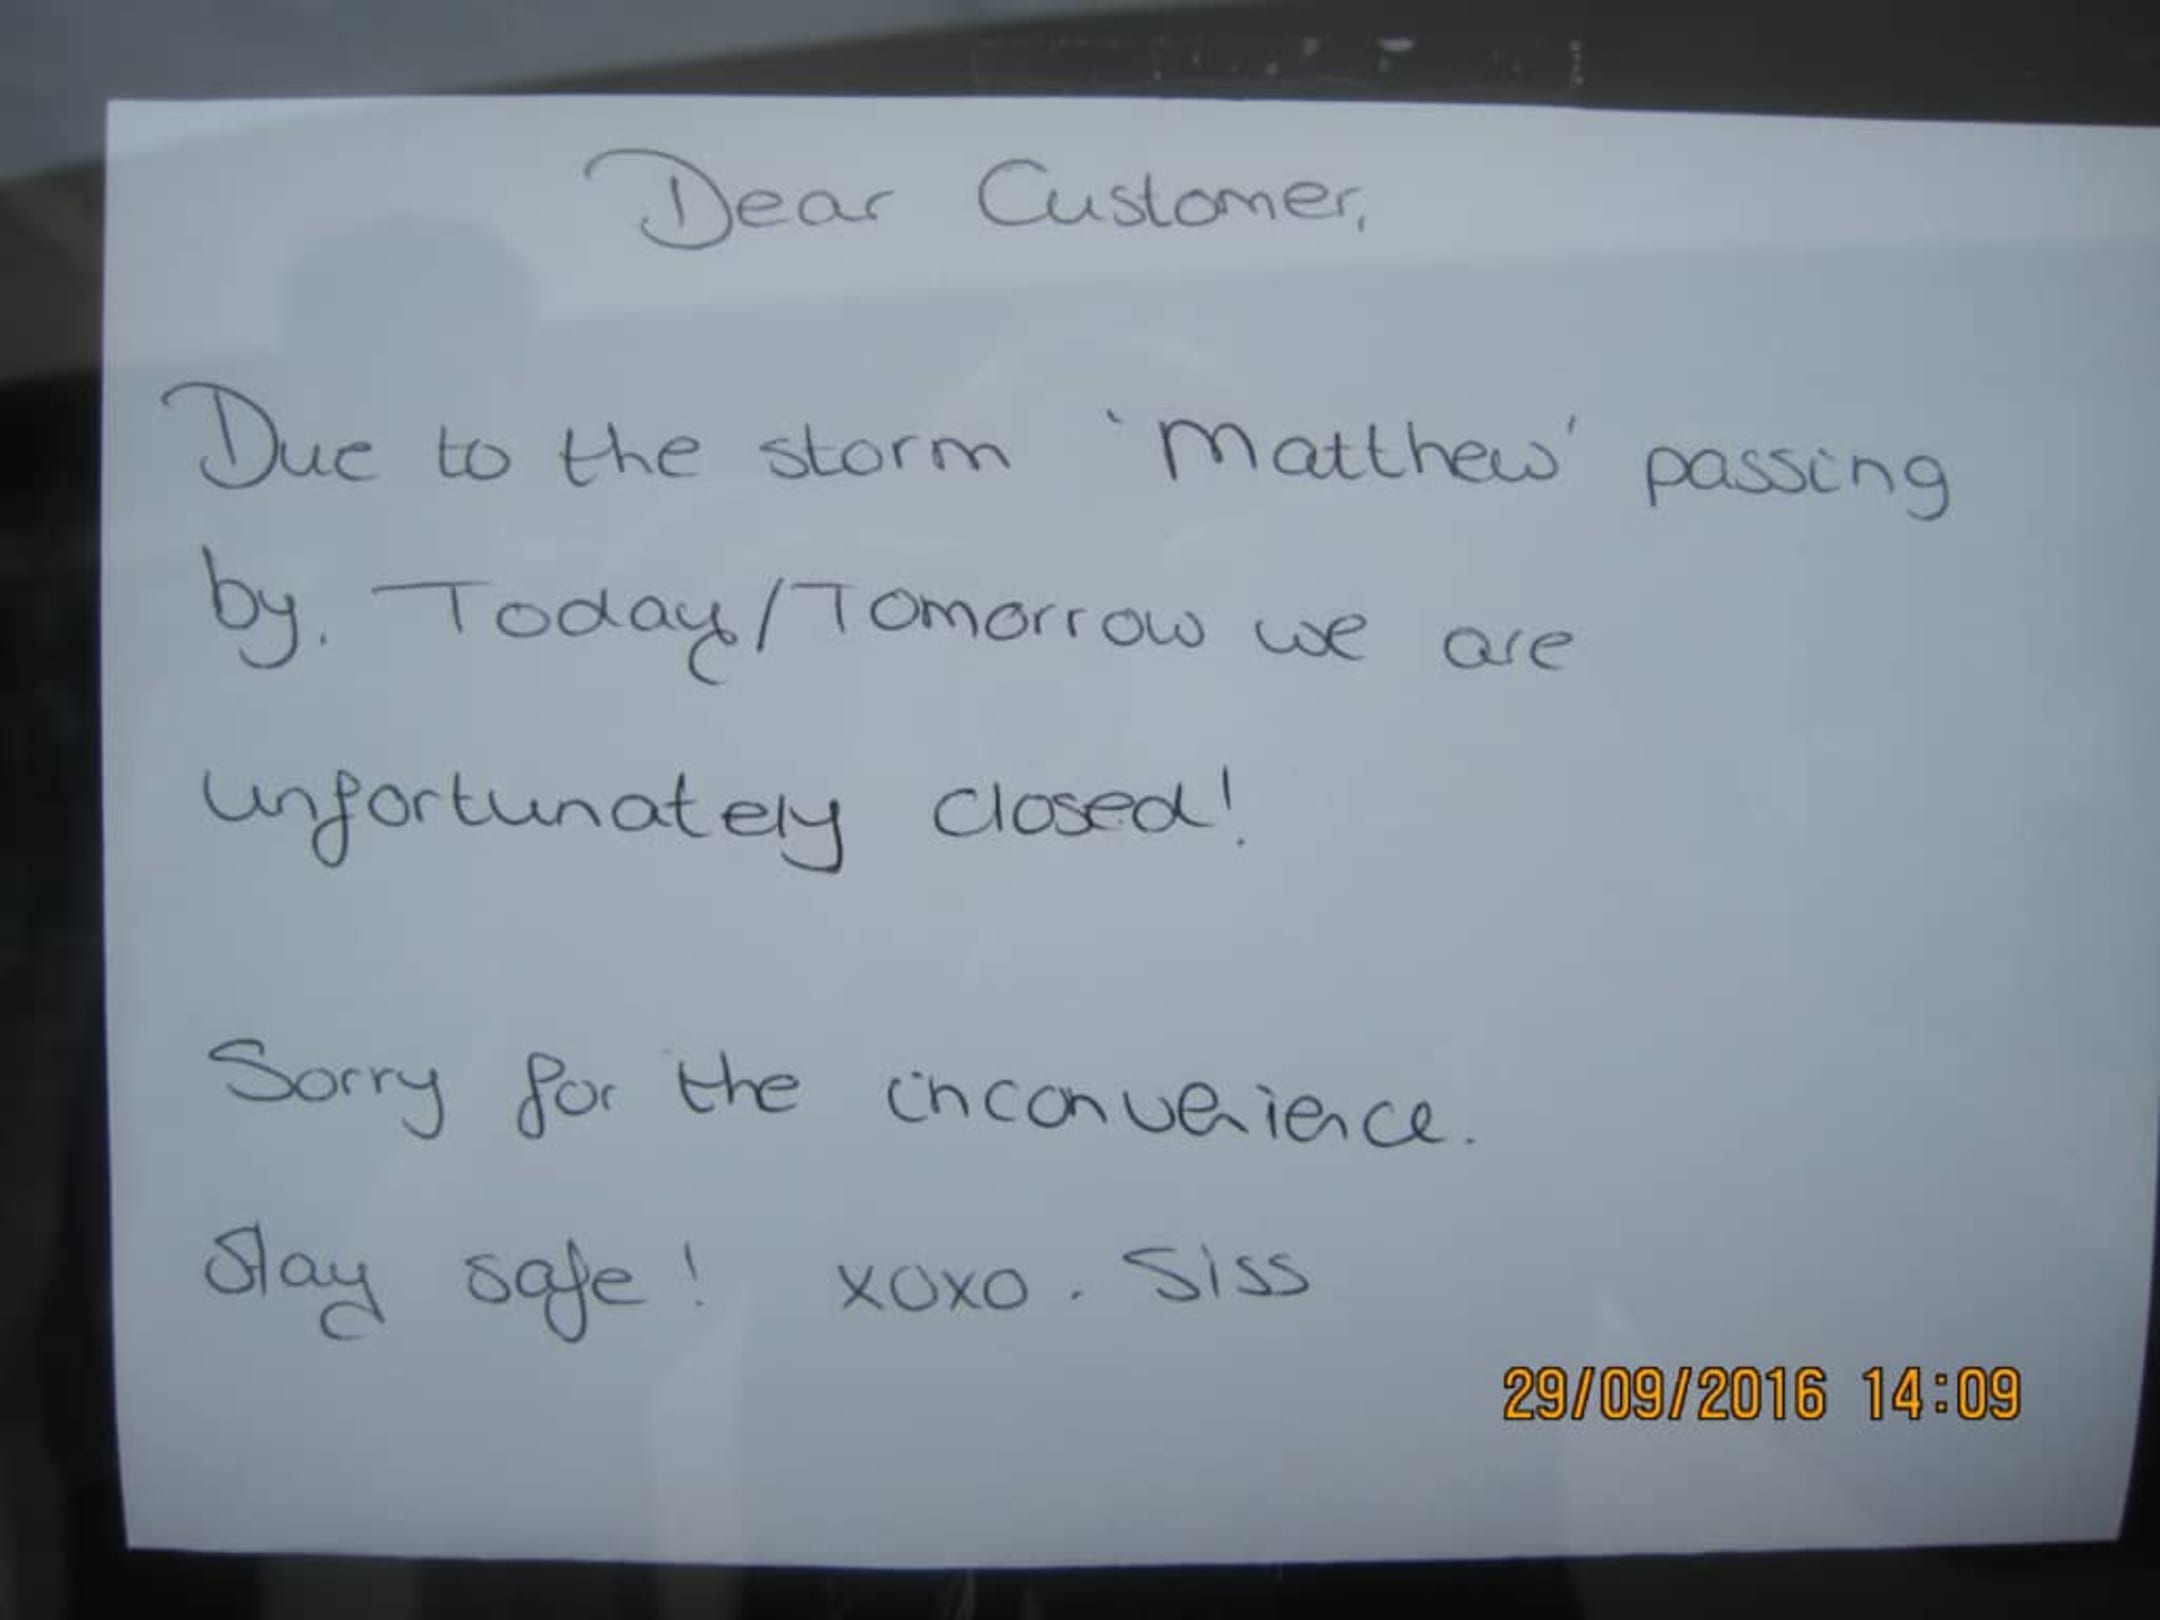 Dear Customer,
Due to the storm 'Matthew' passing
by. Today/Tomorrow we are
unfortunately closed!
Sorry for the inconvenience.
Stay safe! xoxo. Siss
29/09/2016 14:09